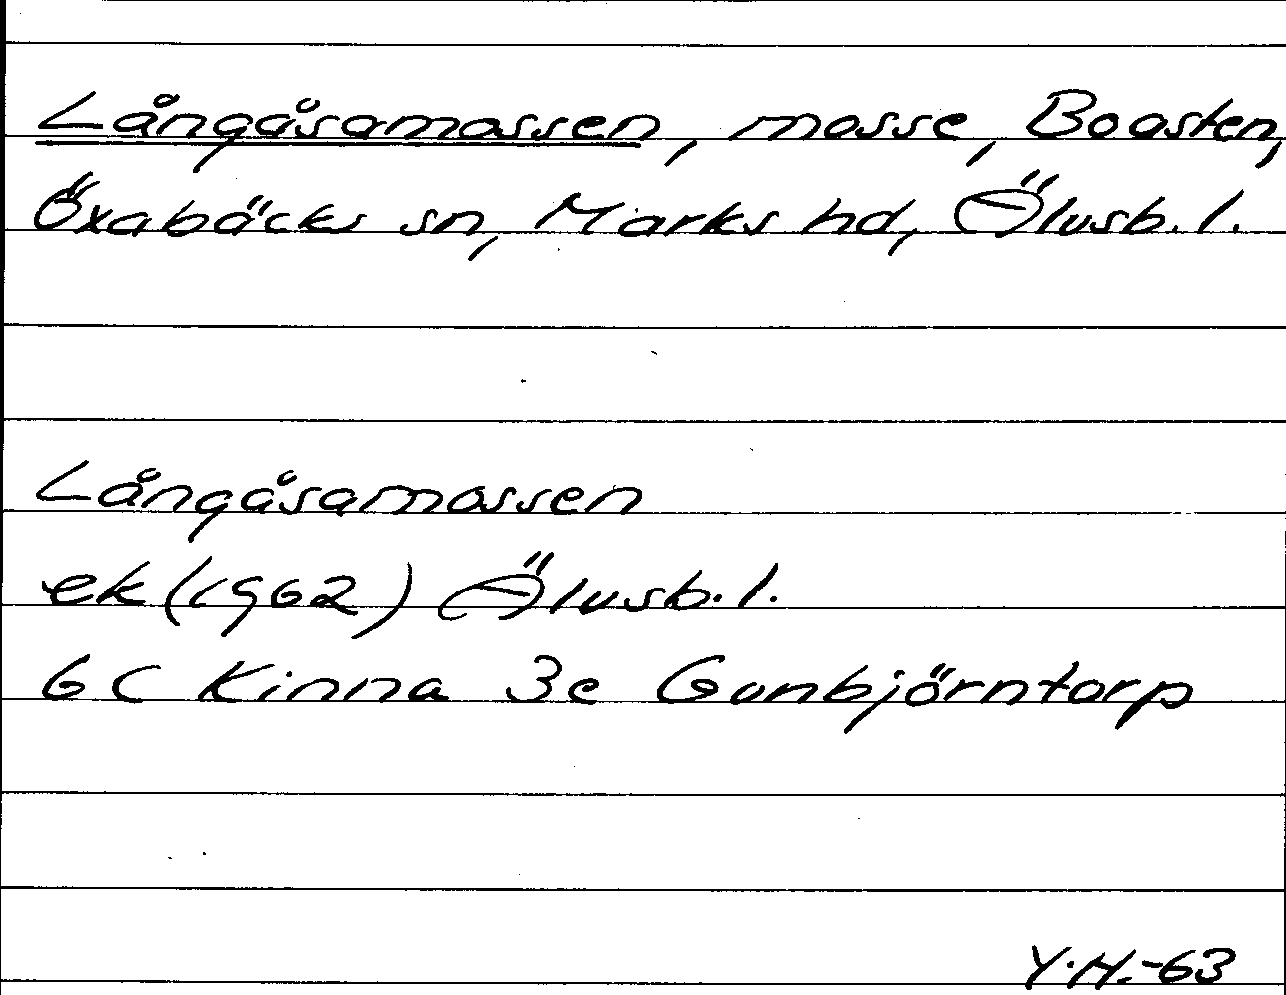 Långåsamossen, mosse, Boasten,
Öxabäcks sn, Marks hd, Älvsb. l.
Långåsamossen
ek (1962) Älvsb. l.
6 C Kinna 3e Gunbjörntorp
Y.H.-63